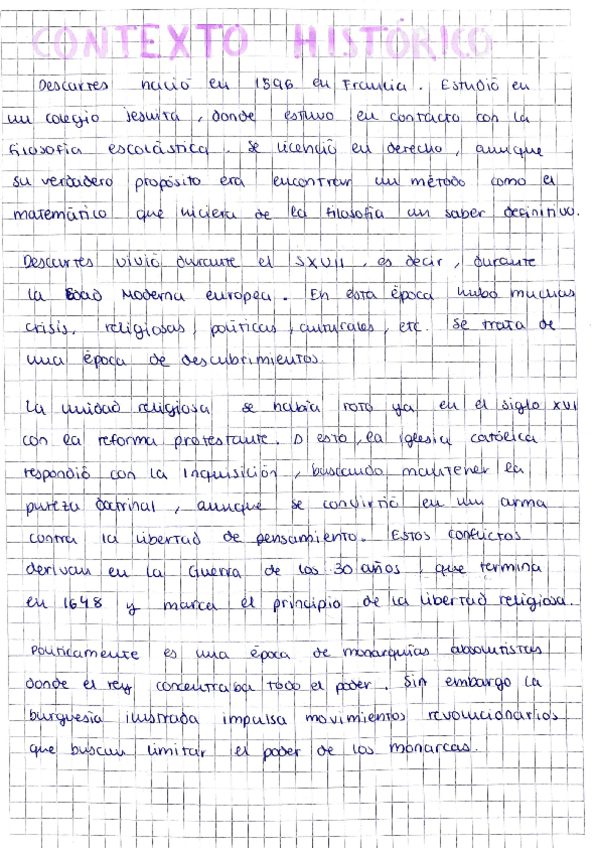 CONTEXTO HISTÓRICO
Descartes nació en 1596 en Francia. Estudió en
un colegio jesuita, donde estuvo en contacto con la
filosofía escolástica. Se licenció en derecho, aunque
su verdadero propósito era encontrar un método como el
matemático que hiciera de la filosofía un saber definitivo.
Descartes vivió durante el SXVII, es decir, durante
la Edad Moderna europea. En esta época hubo muchas
crisis, religiosas, políticas, culturales, etc. Se trata de
una época de descubrimientos.
La unidad religiosa se había roto ya en el siglo XVI
con la reforma protestante. D esto, la iglesia católica
respondió con la Inquisición, buscando mantener la
pureza doctrinal, aunque se convirtió en un arma
contra la libertad de pensamiento. Estos conflictos
derivan en la Guerra de los 30 años, que termina
en 1648 y marca el principio de la libertad religiosa.
Políticamente es una época de monarquías absolutistas
donde el rey concentraba todo el poder. Sin embargo la
burguesía ilustrada impulsa movimientos revolucionarios
que buscan limitar el poder de los monarcas.